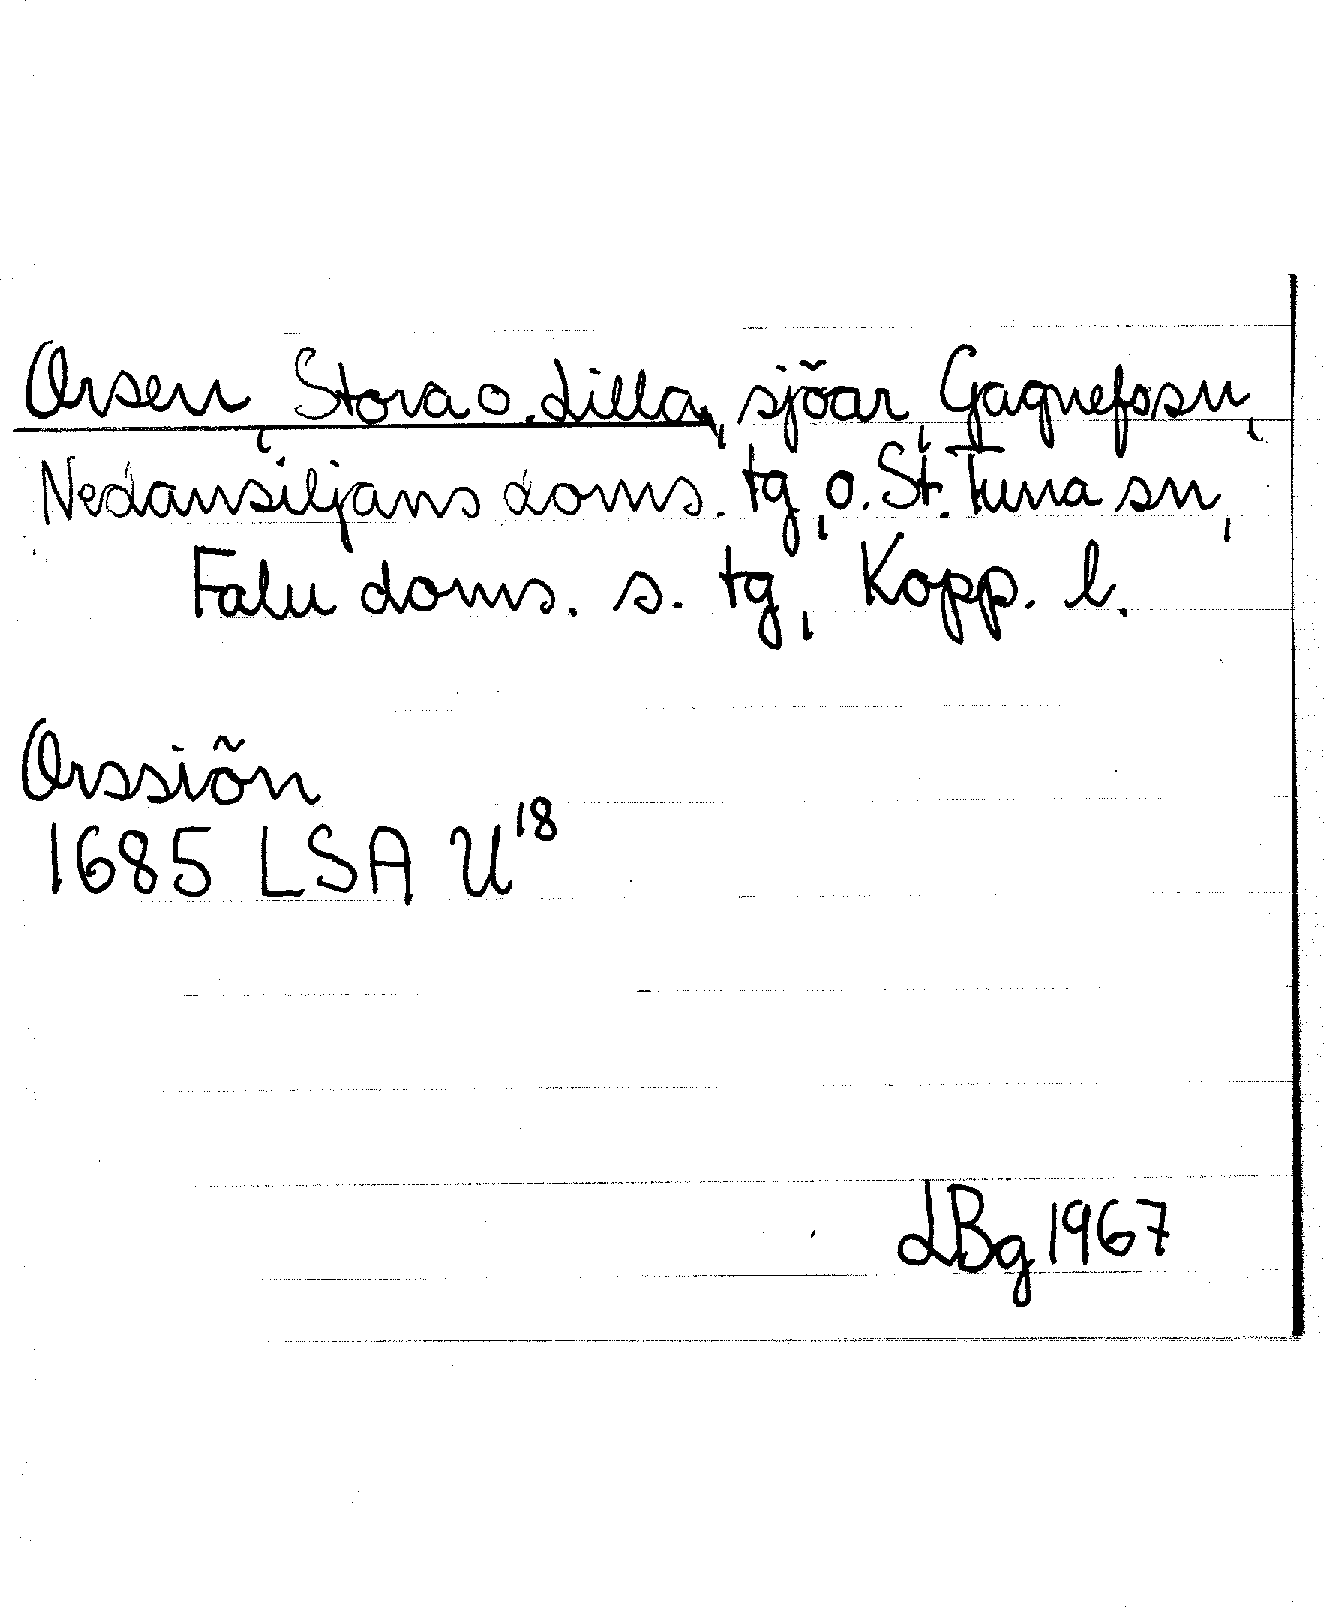 Orsen, Stora o. Lilla, sjöar, Gagnefs sn,
Nedansiljans doms. tg, o. St. Tuna sn,
Falu doms. s. tg, Kopp. l.
Orssiön
1685 LSA U18
LBg 1967